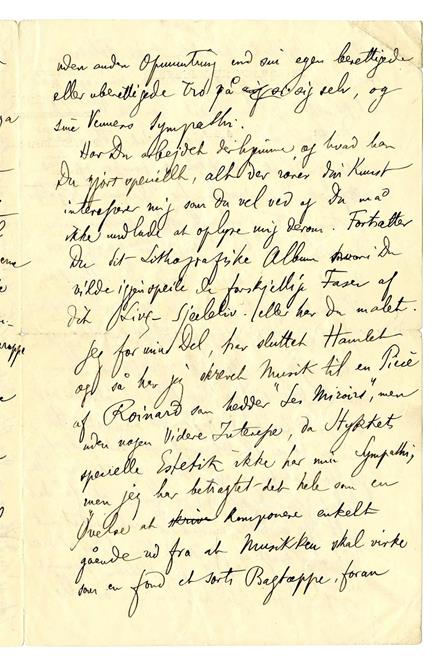 uden anden Opmuntring end sin egen berettigede
eller uberettigede Tro på sig selv, og
sine Venners Sympathi.
Har Du arbejdet derhjemme og hvad har
Du gjort speciellt, alt der rører din Kunst
interesserer mig som du vel ved og Du må
ikke undlade at oplyse mig derom. Fortsætter
Du dit Lithografiske Album hvori Du
vilde igjenspeile de forskjellige Faser af
dit Livs- Sjæleliv. eller har du malet.
Jeg for min Del, har sluttet Hamlet
og så har jeg skrevet Musik til en Piece
af Roinard som hedder "Les Miroirs", men
uden nogen Videre Interesse, da Stykkets
specielle Estetik ikke har min Sympathi,
men jeg har betragtet det hele som en
Øvelse at skrive komponere enkelt
gående ud fra at Musikken skal virke
som en fond et sorts Bagtæppe, foran